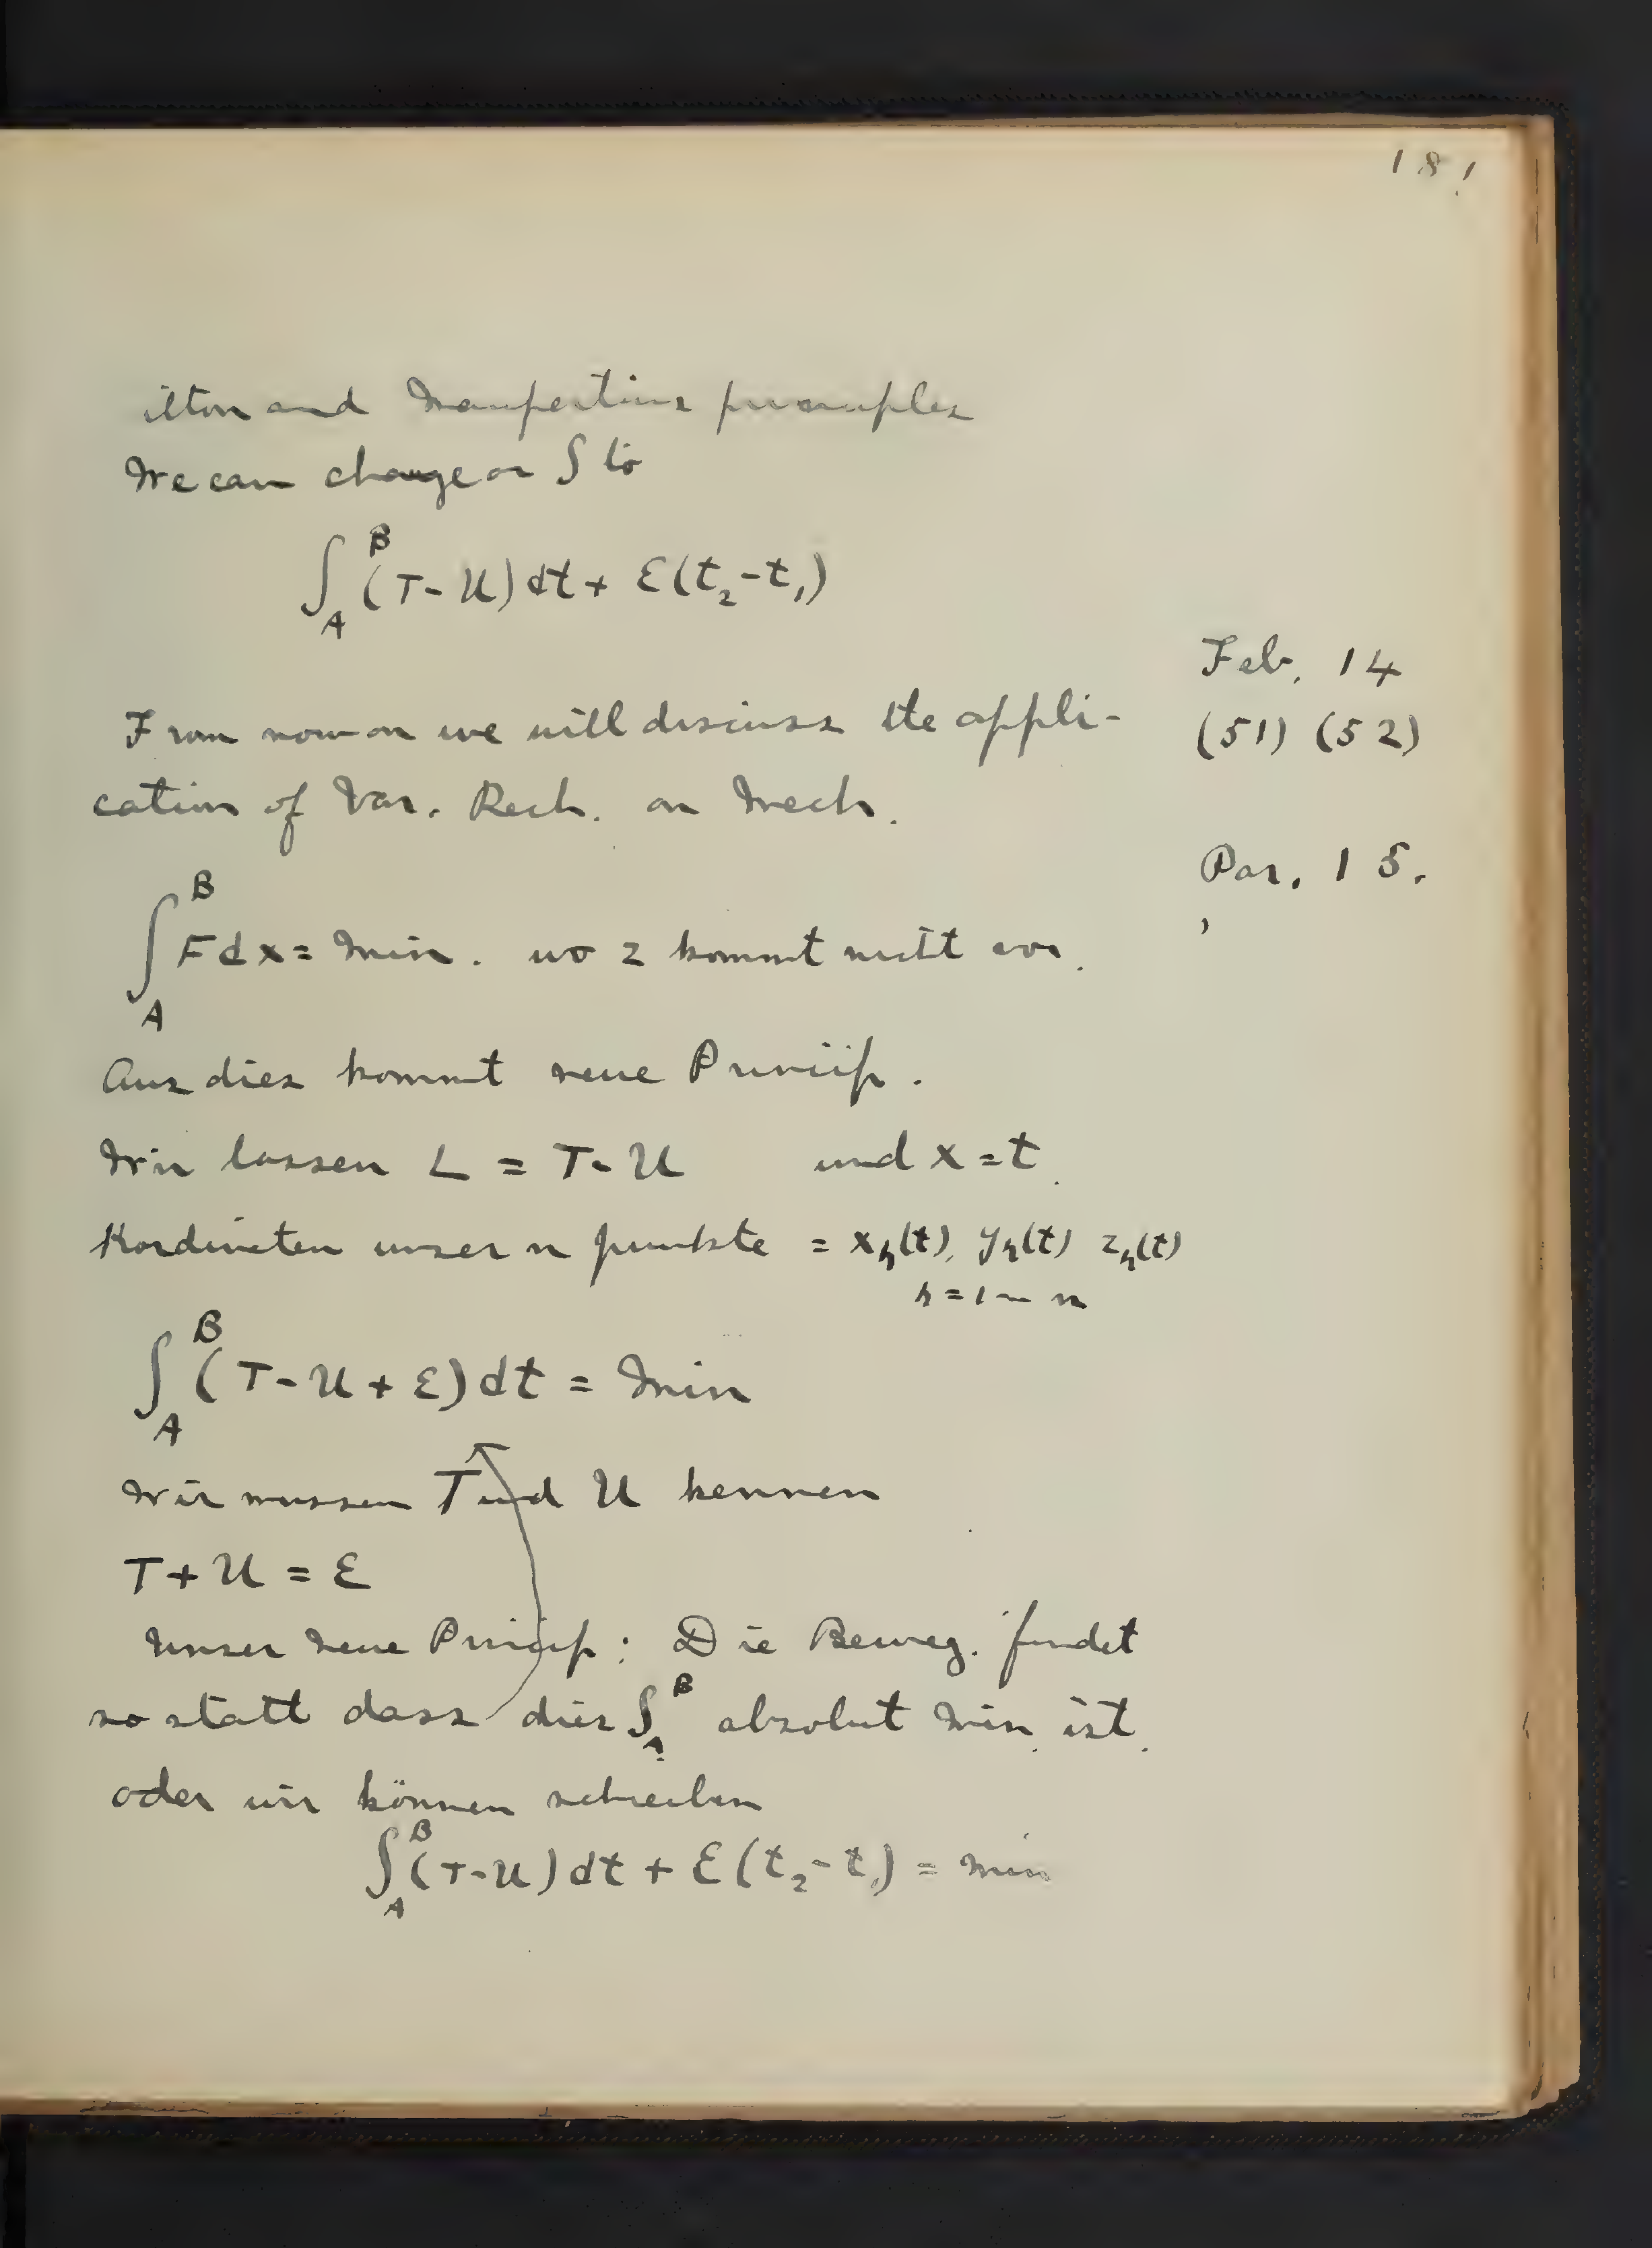 181
ilton and Maupertius principles
We can change on ∫ to
∫_A^B (T-U)dt + E(t₂-t₁)
Feb. 14
From now on we will discuss the appli-
(51) (52)
cation of Var. Rech. on Mech.
Par. 15.
∫_A^B Fdx = Min. wo z kommt nicht vor.
Aus dies kommt neue Princip.
Wir lassen L = T-U und x=t.
Kordineten unser n punkte = x_h(t), y_h(t) z_h(t)
h=1–n
∫_A^B (T-U+E)dt = Min
Wir mussen T und U kennen
T+U = E
Unser neue Princip: Die Beweg. findet
so statt dass dies ∫_A^B absolut Min. ist.
oder wir können schreiben
∫_A^B (T-U)dt + E(t₂-t₁) = min